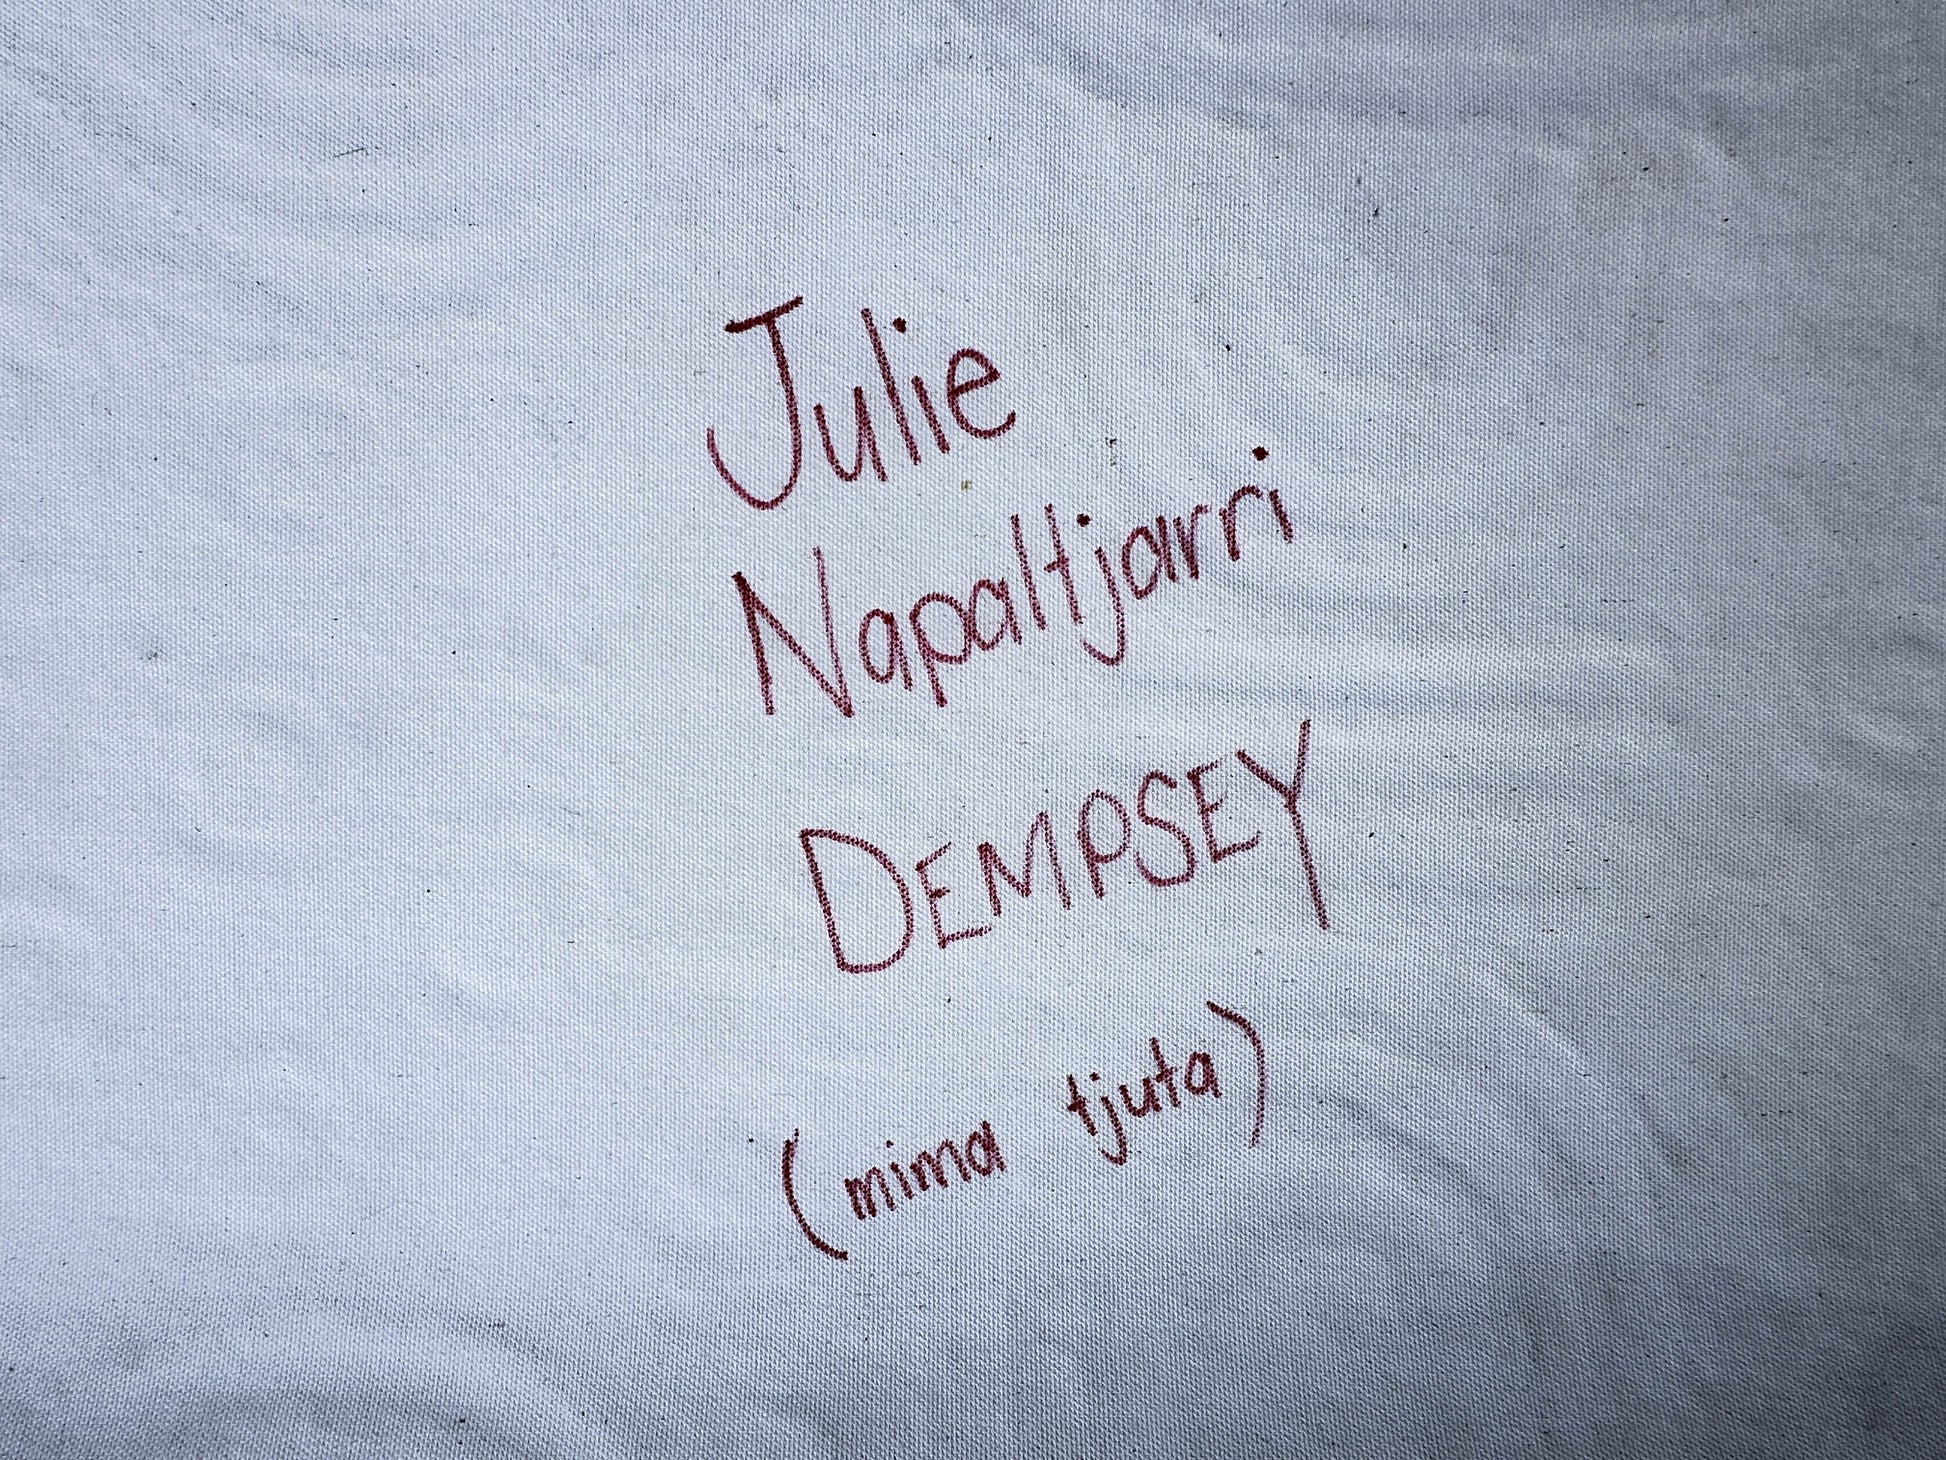 Julie
Napaltjarri
DEMPSEY
(mima tjuta)